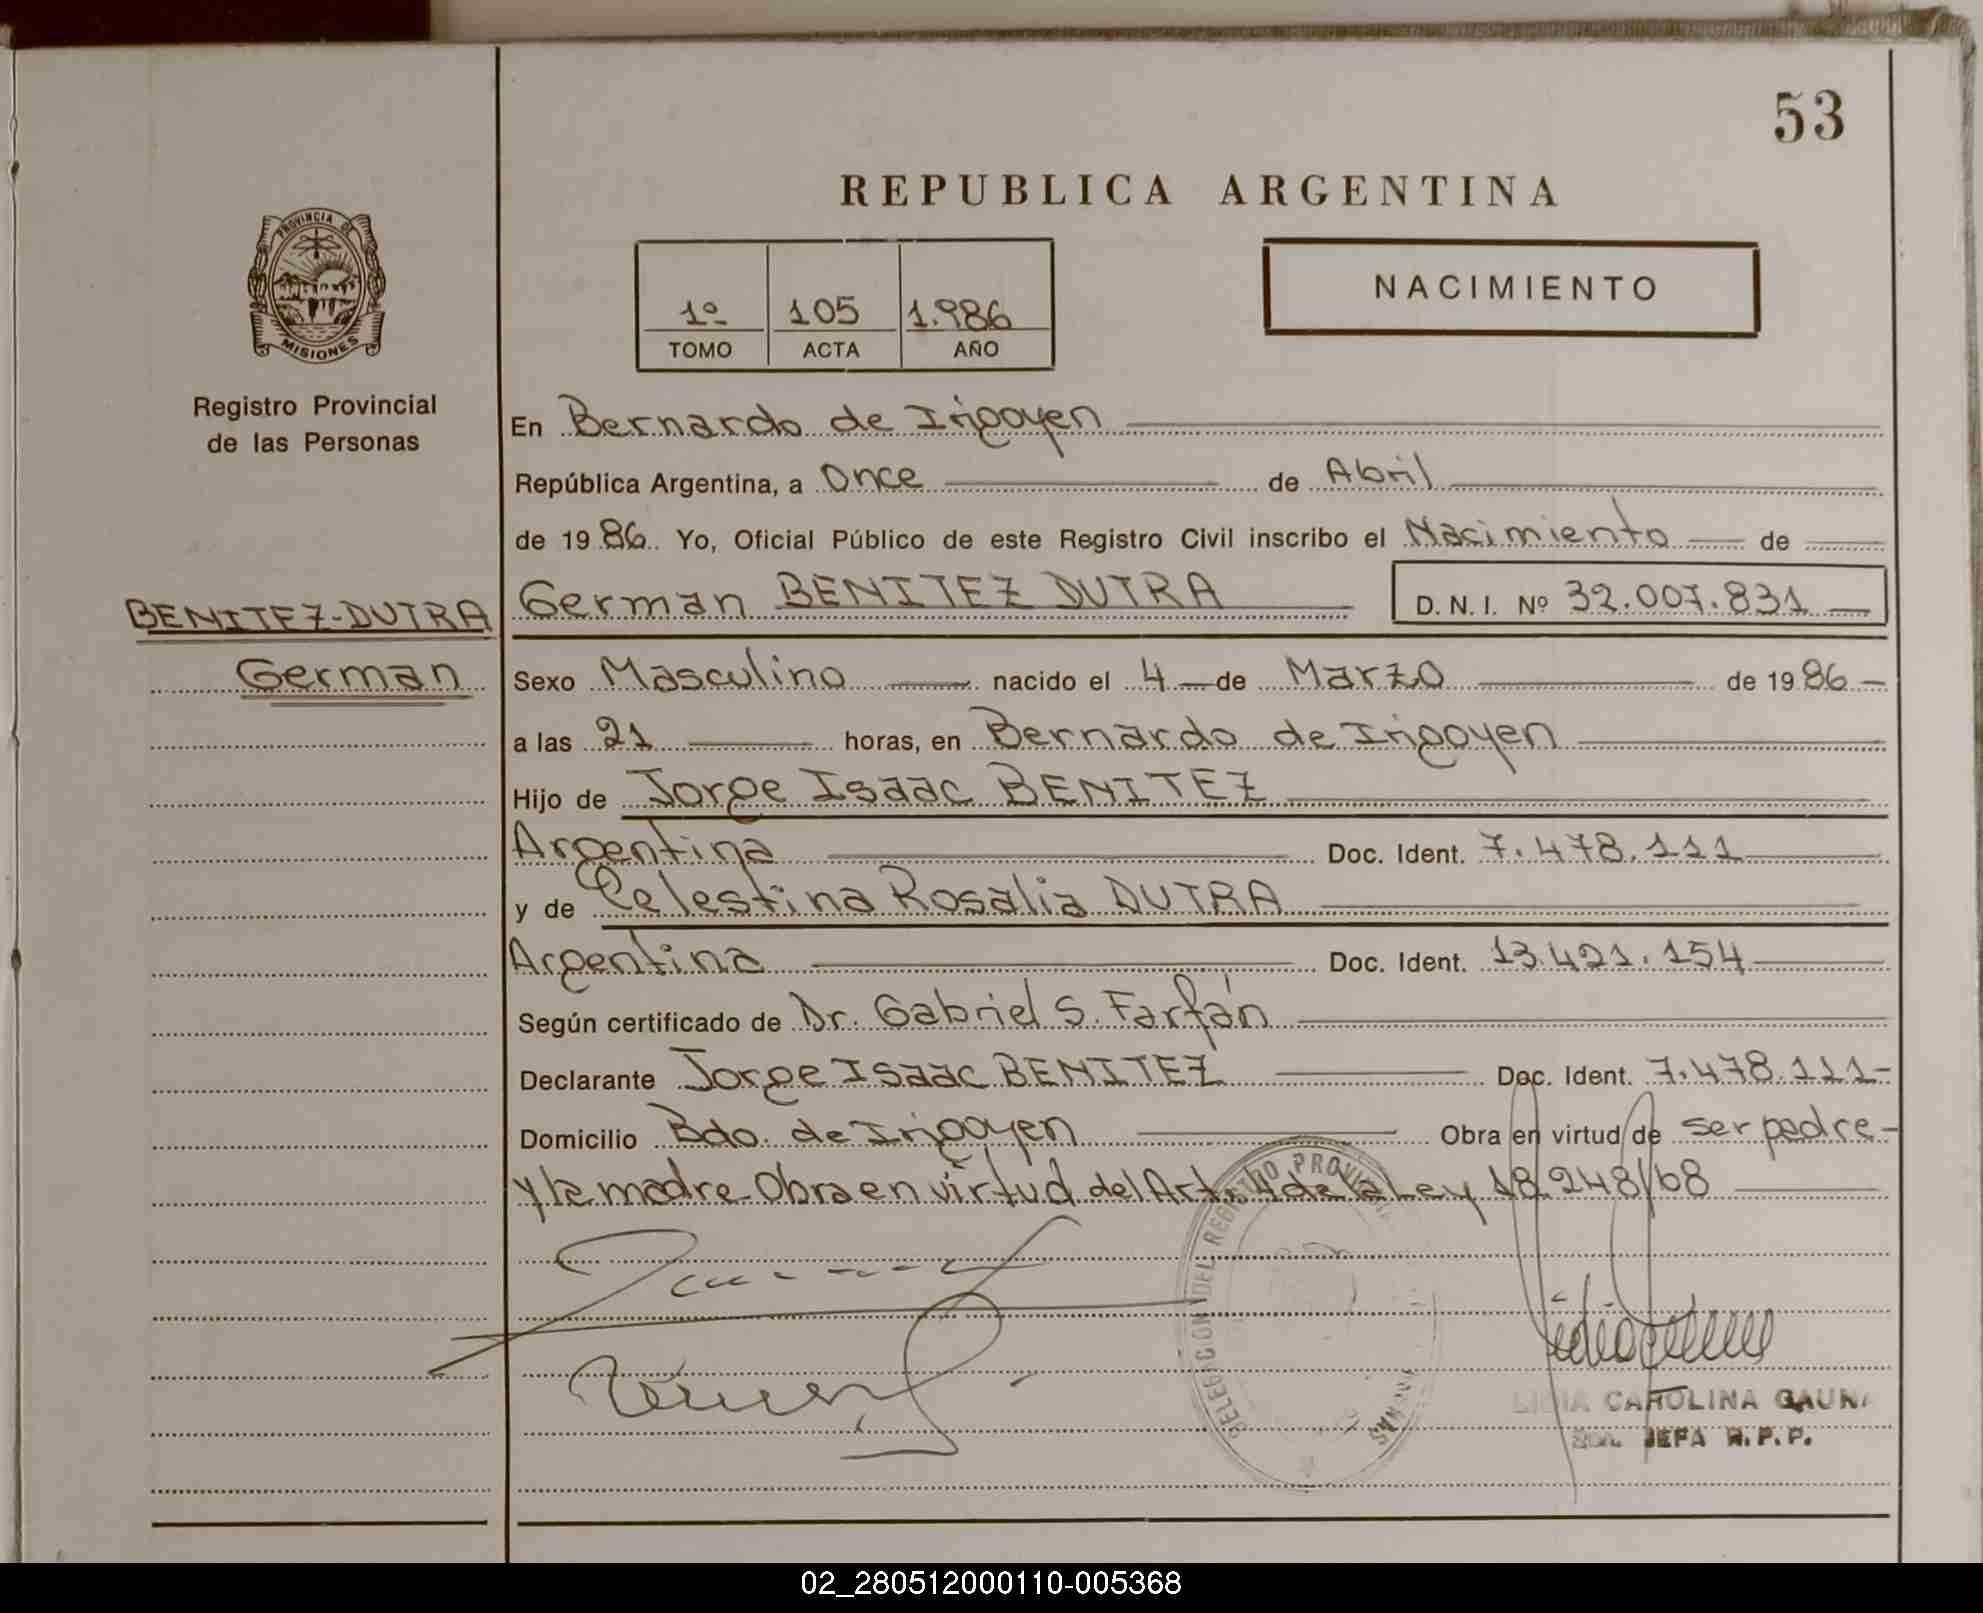 53
REPUBLICA ARGENTINA
PROVINCIA DE
MISIONES
Registro Provincial
de las Personas
1º 105 1.986
TOMO ACTA AÑO
NACIMIENTO
En Bernardo de Irigoyen
República Argentina, a Once de Abril
de 1986 Yo, Oficial Público de este Registro Civil inscribo el Nacimiento de
BENITEZ-DUTRA
German
German BENITEZ DUTRA D.N.I. Nº 32.007.831
Sexo Masculino nacido el 4 de Marzo de 1986
a las 21 horas, en Bernardo de Irigoyen
Hijo de Jorge Isaac BENITEZ
Argentina Doc. Ident. 7.478.111
y de Celestina Rosalia DUTRA
Argentina Doc. Ident. 13.421.154
Según certificado de Dr. Gabriel S. Farfán
Declarante Jorge Isaac BENITEZ Doc. Ident. 7.478.111-
Domicilio Bdo. de Irigoyen Obra en virtud de ser padre-
y la madre Obra en virtud del Art. 4 de la Ley 18.248/68
DELEGACION DEL REGISTRO PROVINCIAL
CAROLINA GAUNA
JEFA R.P.P.
02_280512000110-005368